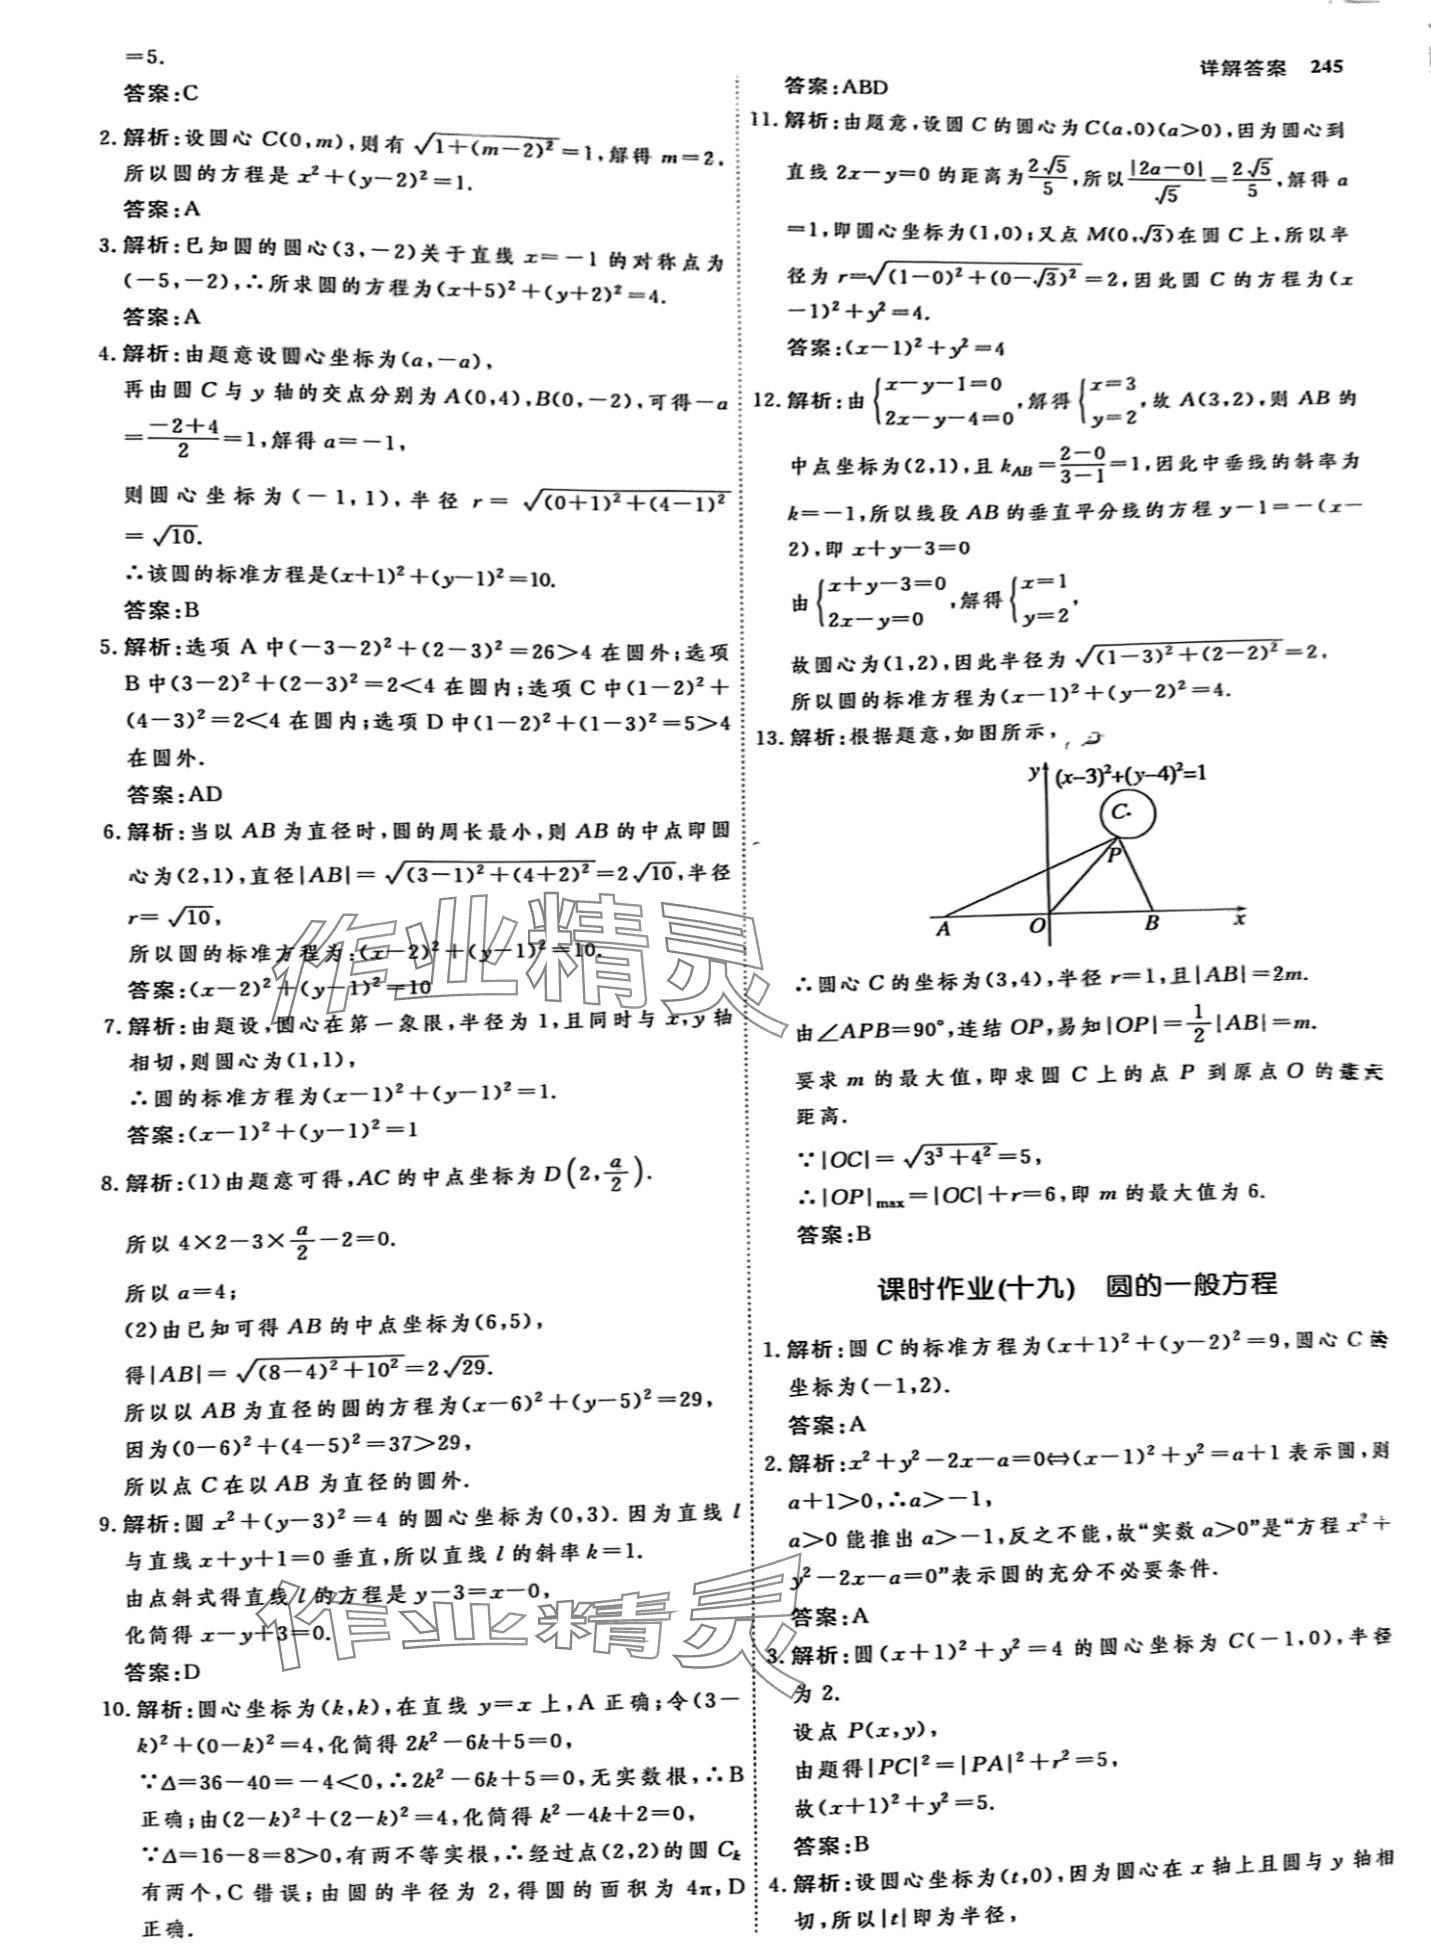 详解答案 245
=5.
答案:C
2. 解析:设圆心 C(0,m),则有 √(1+(m-2)²)=1,解得 m=2.
所以圆的方程是 x²+(y-2)²=1.
答案:A
3. 解析:已知圆的圆心(3,-2)关于直线 x=-1 的对称点为
(-5,-2),∴所求圆的方程为(x+5)²+(y+2)²=4.
答案:A
4. 解析:由题意设圆心坐标为(a,-a),
再由圆 C 与 y 轴的交点分别为 A(0,4),B(0,-2),可得-a
=(-2+4)/2=1,解得 a=-1,
则圆心坐标为(-1,1),半径 r=√((0+1)²+(4-1)²)
=√10.
∴该圆的标准方程是(x+1)²+(y-1)²=10.
答案:B
5. 解析:选项 A 中(-3-2)²+(2-3)²=26>4 在圆外;选项
B 中(3-2)²+(2-3)²=2<4 在圆内;选项 C 中(1-2)²+
(4-3)²=2<4 在圆内;选项 D 中(1-2)²+(1-3)²=5>4
在圆外.
答案:AD
6. 解析:当以 AB 为直径时,圆的周长最小,则 AB 的中点即圆
心为(2,1),直径|AB|=√((3-1)²+(4+2)²)=2√10,半径
r=√10,
所以圆的标准方程为:(x-2)²+(y-1)²=10.
答案:(x-2)²+(y-1)²=10
7. 解析:由题设,圆心在第一象限,半径为 1,且同时与 x,y 轴
相切,则圆心为(1,1),
∴圆的标准方程为(x-1)²+(y-1)²=1.
答案:(x-1)²+(y-1)²=1
8. 解析:(1)由题意可得,AC 的中点坐标为 D(2,a/2).
所以 4×2-3×a/2-2=0.
所以 a=4;
(2)由已知可得 AB 的中点坐标为(6,5),
得|AB|=√((8-4)²+10²)=2√29.
所以以 AB 为直径的圆的方程为(x-6)²+(y-5)²=29,
因为(0-6)²+(4-5)²=37>29,
所以点 C 在以 AB 为直径的圆外.
9. 解析:圆 x²+(y-3)²=4 的圆心坐标为(0,3). 因为直线 l
与直线 x+y+1=0 垂直,所以直线 l 的斜率 k=1.
由点斜式得直线 l 的方程是 y-3=x-0,
化简得 x-y+3=0.
答案:D
10. 解析:圆心坐标为(k,k),在直线 y=x 上,A 正确;令(3-
k)²+(0-k)²=4,化简得 2k²-6k+5=0,
∵Δ=36-40=-4<0,∴2k²-6k+5=0,无实数根,∴B
正确;由(2-k)²+(2-k)²=4,化简得 k²-4k+2=0,
∵Δ=16-8=8>0,有两不等实根,∴经过点(2,2)的圆 Cₖ
有两个,C 错误;由圆的半径为 2,得圆的面积为 4π,D
正确.
答案:ABD
11. 解析:由题意,设圆 C 的圆心为 C(a,0)(a>0),因为圆心到
直线 2x-y=0 的距离为2√5/5,所以|2a-0|/√5=2√5/5,解得 a
=1,即圆心坐标为(1,0);又点 M(0,√3)在圆 C 上,所以半
径为 r=√((1-0)²+(0-√3)²)=2,因此圆 C 的方程为(x
-1)²+y²=4.
答案:(x-1)²+y²=4
12. 解析:由{x-y-1=0 2x-y-4=0,解得{x=3 y=2,故 A(3,2),则 AB 的
中点坐标为(2,1),且 k_AB=(2-0)/(3-1)=1,因此中垂线的斜率为
k=-1,所以线段 AB 的垂直平分线的方程 y-1=-(x-
2),即 x+y-3=0
由{x+y-3=0 2x-y=0,解得{x=1 y=2,
故圆心为(1,2),因此半径为 √((1-3)²+(2-2)²)=2,
所以圆的标准方程为(x-1)²+(y-2)²=4.
13. 解析:根据题意,如图所示,
y (x-3)²+(y-4)²=1
C
P
A O B x
∴圆心 C 的坐标为(3,4),半径 r=1,且|AB|=2m.
由∠APB=90°,连结 OP,易知|OP|=1/2|AB|=m.
要求 m 的最大值,即求圆 C 上的点 P 到原点 O 的
距离.
∵|OC|=√(3³+4²)=5,
∴|OP|max=|OC|+r=6,即 m 的最大值为 6.
答案:B
课时作业(十九) 圆的一般方程
1. 解析:圆 C 的标准方程为(x+1)²+(y-2)²=9,圆心 C
坐标为(-1,2).
答案:A
2. 解析:x²+y²-2x-a=0⇔(x-1)²+y²=a+1 表示圆,则
a+1>0,∴a>-1,
a>0 能推出 a>-1,反之不能,故“实数 a>0”是“方程 x²+
y²-2x-a=0”表示圆的充分不必要条件.
答案:A
3. 解析:圆(x+1)²+y²=4 的圆心坐标为 C(-1,0),半径
为 2.
设点 P(x,y),
由题得|PC|²=|PA|²+r²=5,
故(x+1)²+y²=5.
答案:B
4. 解析:设圆心坐标为(t,0),因为圆心在 x 轴上且圆与 y 轴相
切,所以|t|即为半径,
作业精灵
作业精灵